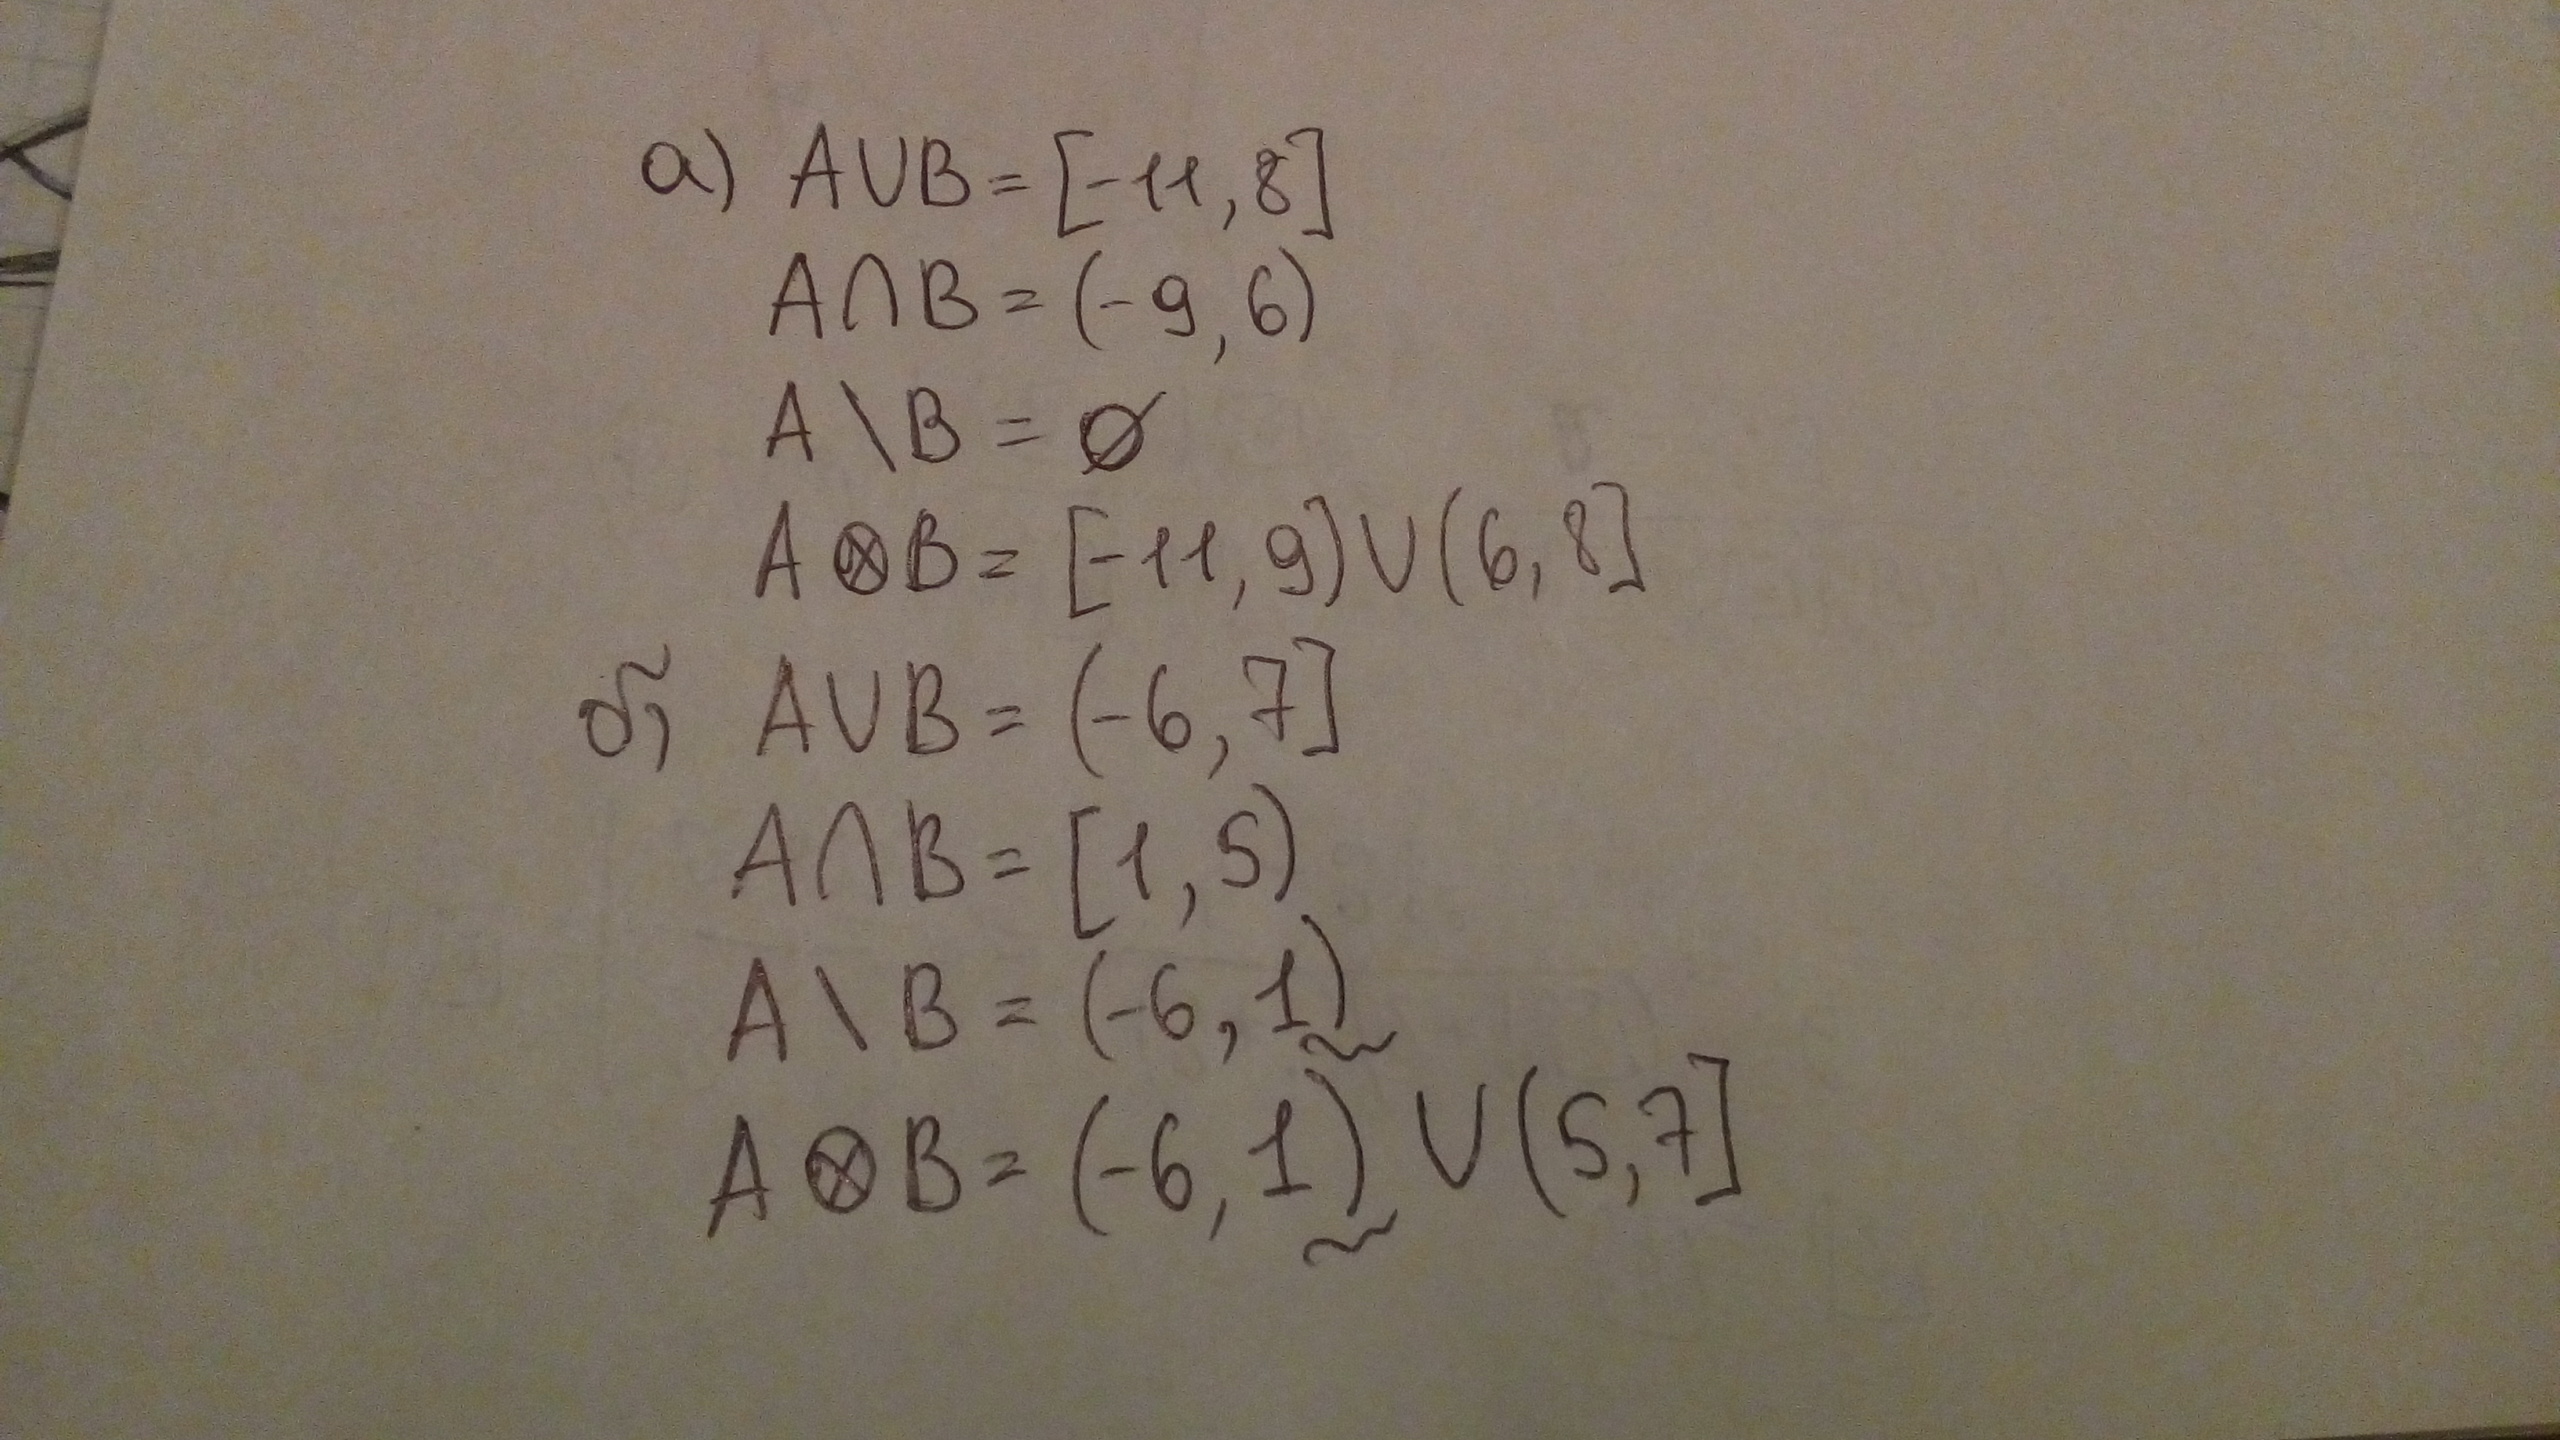 а) A∪B = [-11, 8]
A∩B = (-9, 6)
A \ B = ∅
A ⊗ B = [-11, 9) ∪ (6, 8]
б) A∪B = (-6, 7]
A∩B = [1, 5)
A \ B = (-6, 1)
A ⊗ B = (-6, 1) ∪ (5, 7]